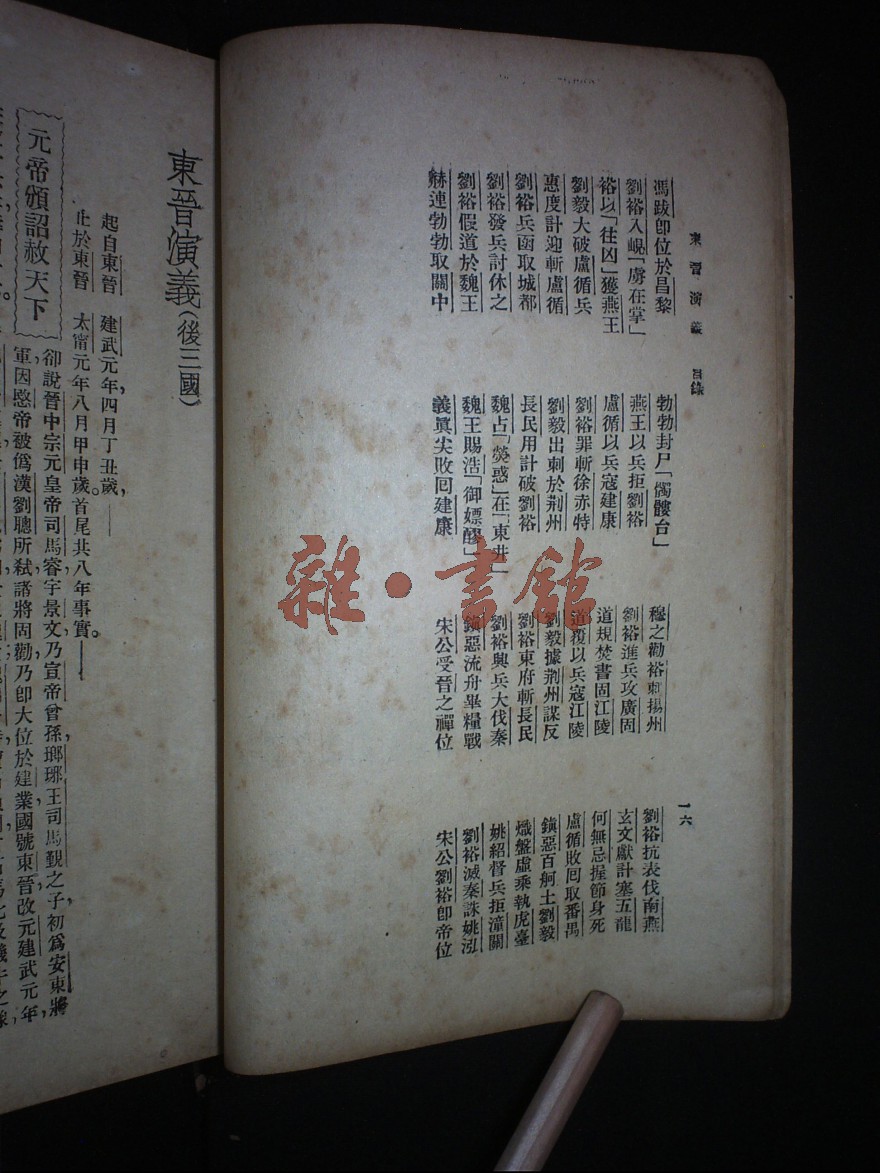 東晉演義 目錄 一六
馮跋卽位於昌黎 勃勃封尸「髑髏台」 穆之勸裕刺揚州 劉裕抗表伐南燕
劉裕入峴「虜在掌」 燕王以兵拒劉裕 劉裕進兵攻廣固 玄文獻計塞五龍
裕以「往凶」獲燕王 盧循以兵寇建康 道規焚書固江陵 何無忌握節身死
劉毅大破盧循兵 劉裕罪斬徐赤特 道覆以兵寇江陵 盧循敗囘取番禺
惠度計迎斬盧循 劉毅出刺於荆州 劉毅據荆州謀反 鎮惡百舸土劉毅
劉裕兵函取城都 長民用計破劉裕 劉裕東府斬長民 熾盤虛乘執虎臺
劉裕發兵討休之 魏占「熒惑」在「東井」 劉裕興兵大伐秦 姚紹督兵拒潼關
劉裕假道於魏王 魏王賜浩「御嫖醪」 鎮惡流舟畢糧戰 劉裕滅秦誅姚泓
赫連勃勃取關中 義眞尖敗囘建康 宋公受晉之禪位 宋公劉裕卽帝位
雜·書館
東晉演義(後三國)
起自東晉 建武元年四月丁丑歲,——
止於東晉 太甯元年八月甲申歲。首尾共八年事實。——
元帝頒詔赦天下
卻說晉中宗元皇帝司馬睿字景文,乃宣帝曾孫,瑯琊王司馬覲之子,初爲安東將
軍,因愍帝被僞漢劉聰所弒,諸將固勸,乃卽大位於建業,國號東晉,改元建武元年,